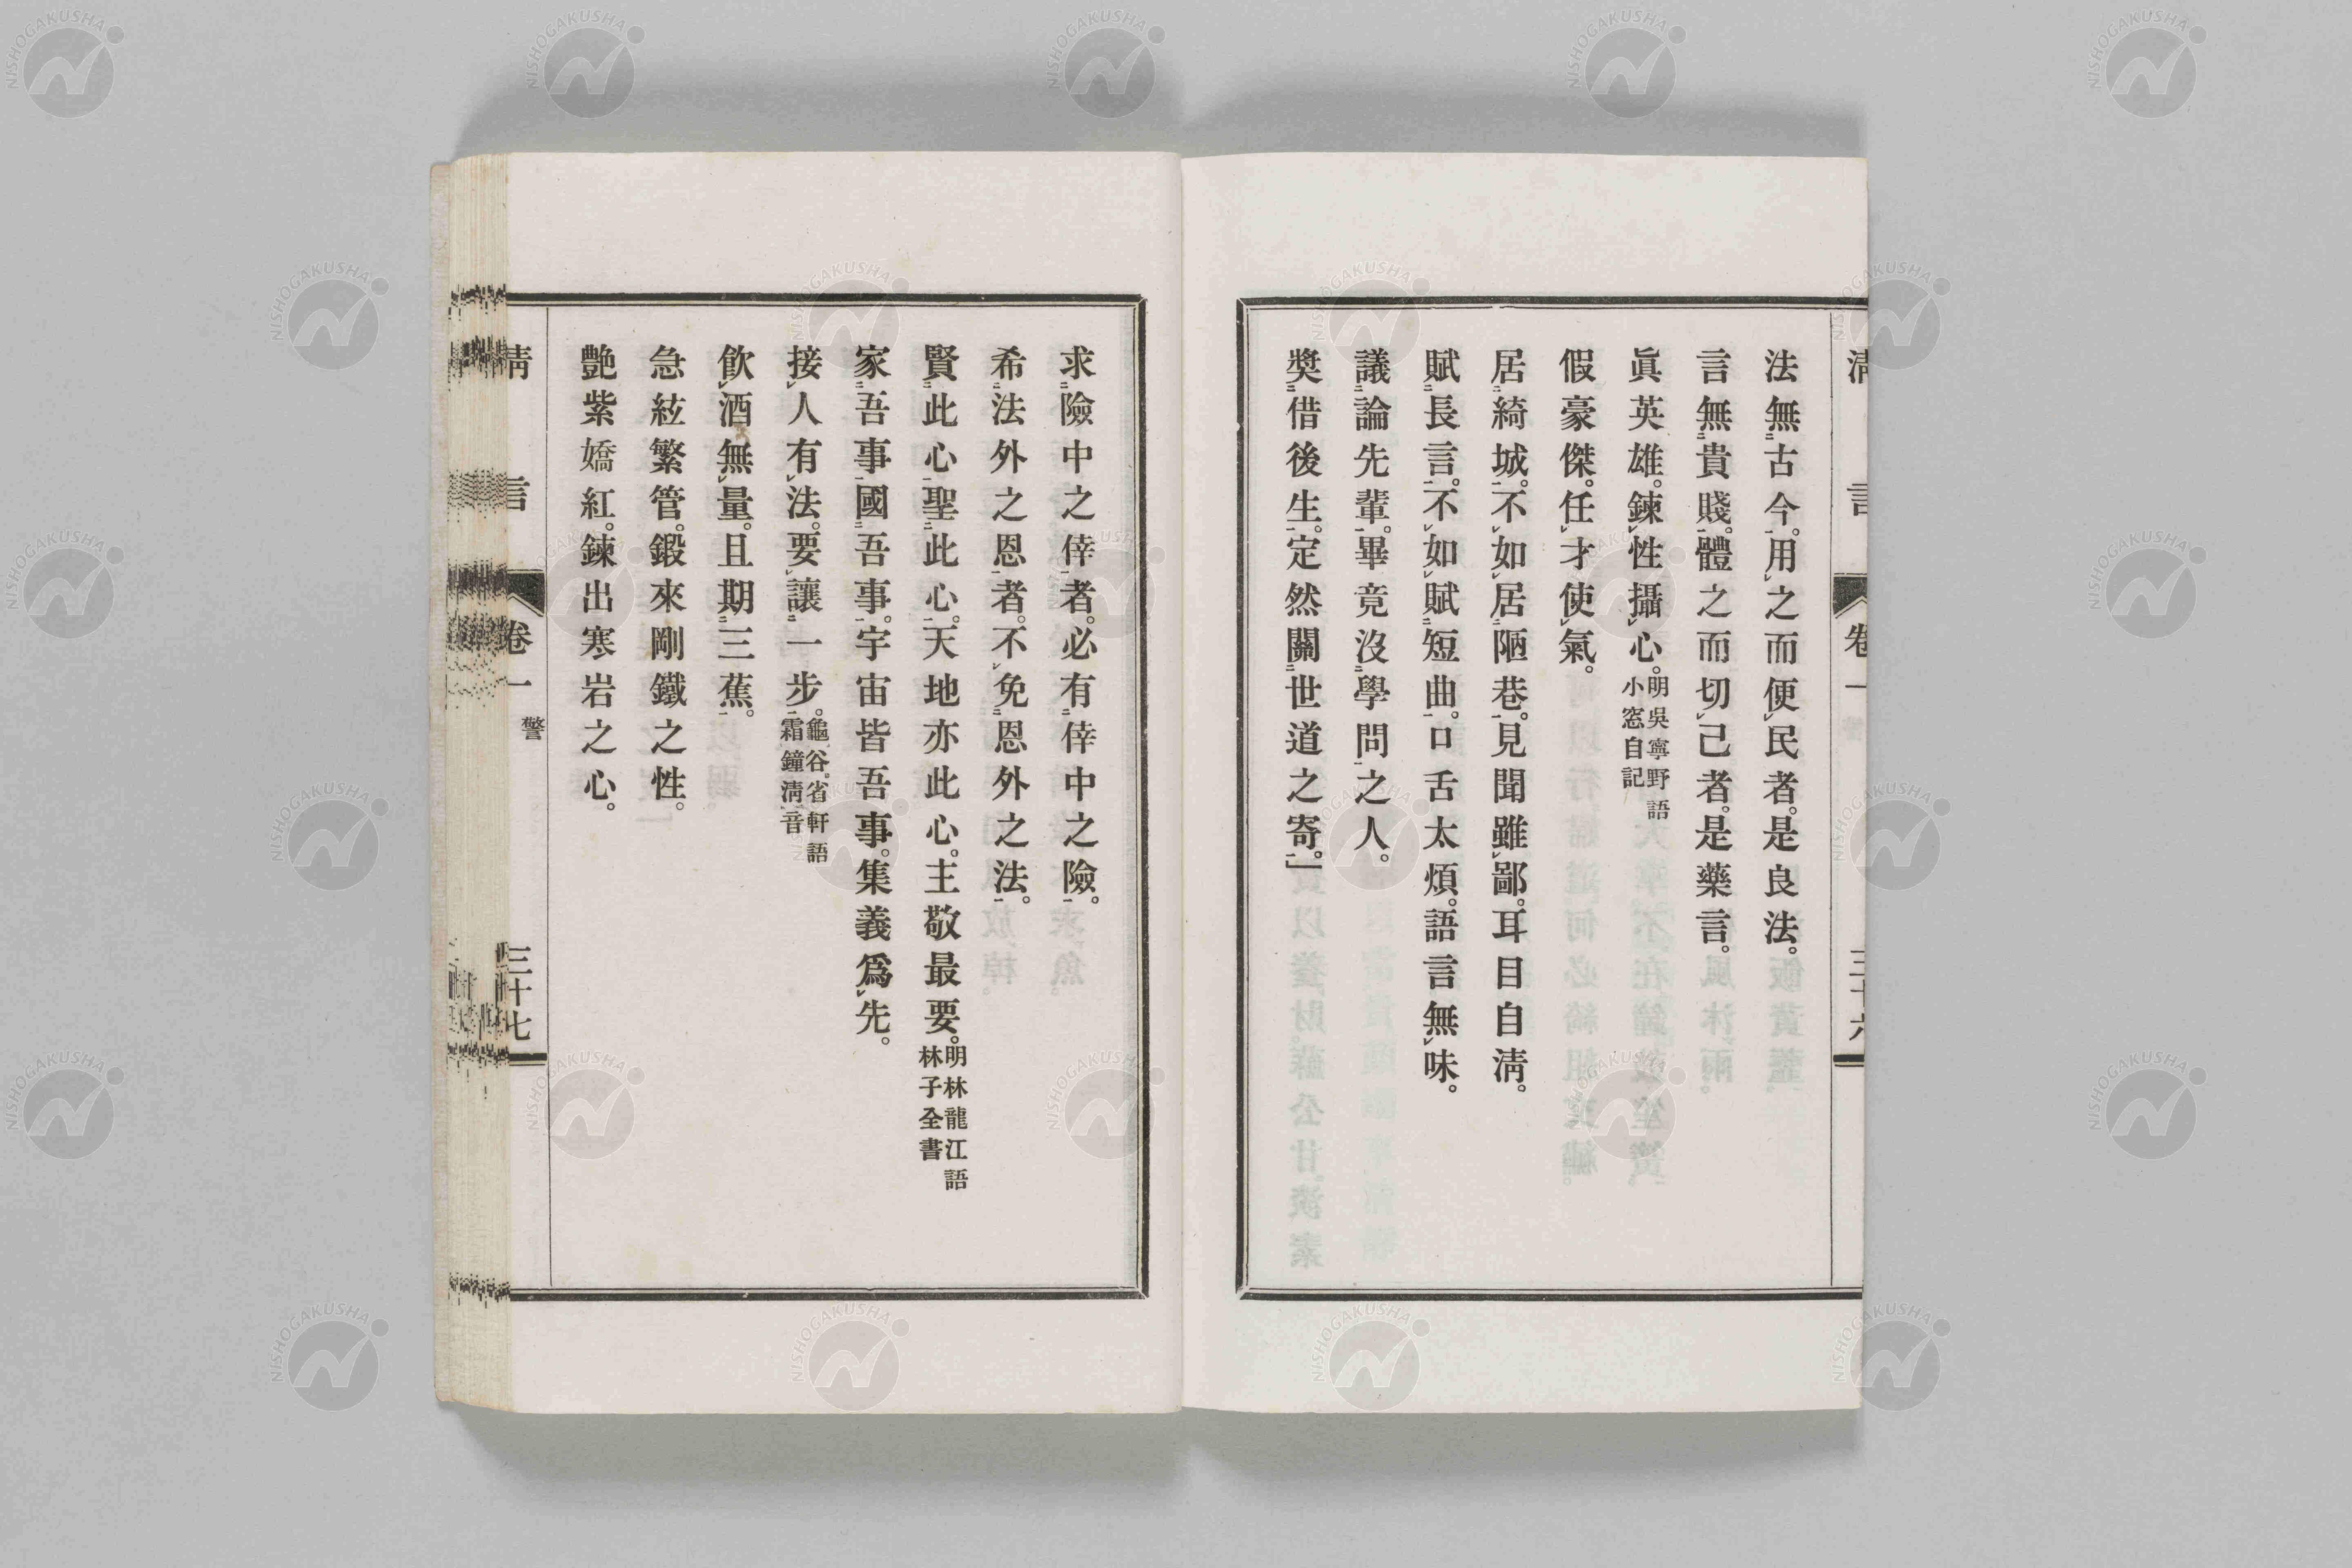 法無古今。用之而便民者。是良法。
言無貴賤。體之而切己者。是藥言。
眞英雄。鍊性攝心。明吳寧野語 小窓自記
假豪傑。任才使氣。
居綺城。不如居陋巷。見聞雖鄙。耳目自淸。
賦長言。不如賦短曲。口舌太煩。語言無味。
議論先輩。畢竟沒學問之人。
奬借後生。定然關世道之寄。」
求險中之倖者。必有倖中之險。
希法外之恩者。不免恩外之法。
賢此心聖此心。天地亦此心。主敬最要。明林龍江語 林子全書
家吾事國吾事。宇宙皆吾事。集義爲先。
接人有法。要讓一步。龜谷省軒語 霜鐘淸音
飮酒無量。且期三蕉。
急絃繁管。鍛來剛鐵之性。
艷紫嬌紅。鍊出寒岩之心。
淸言 卷一 警 三十七
NISHOGAKUSHA